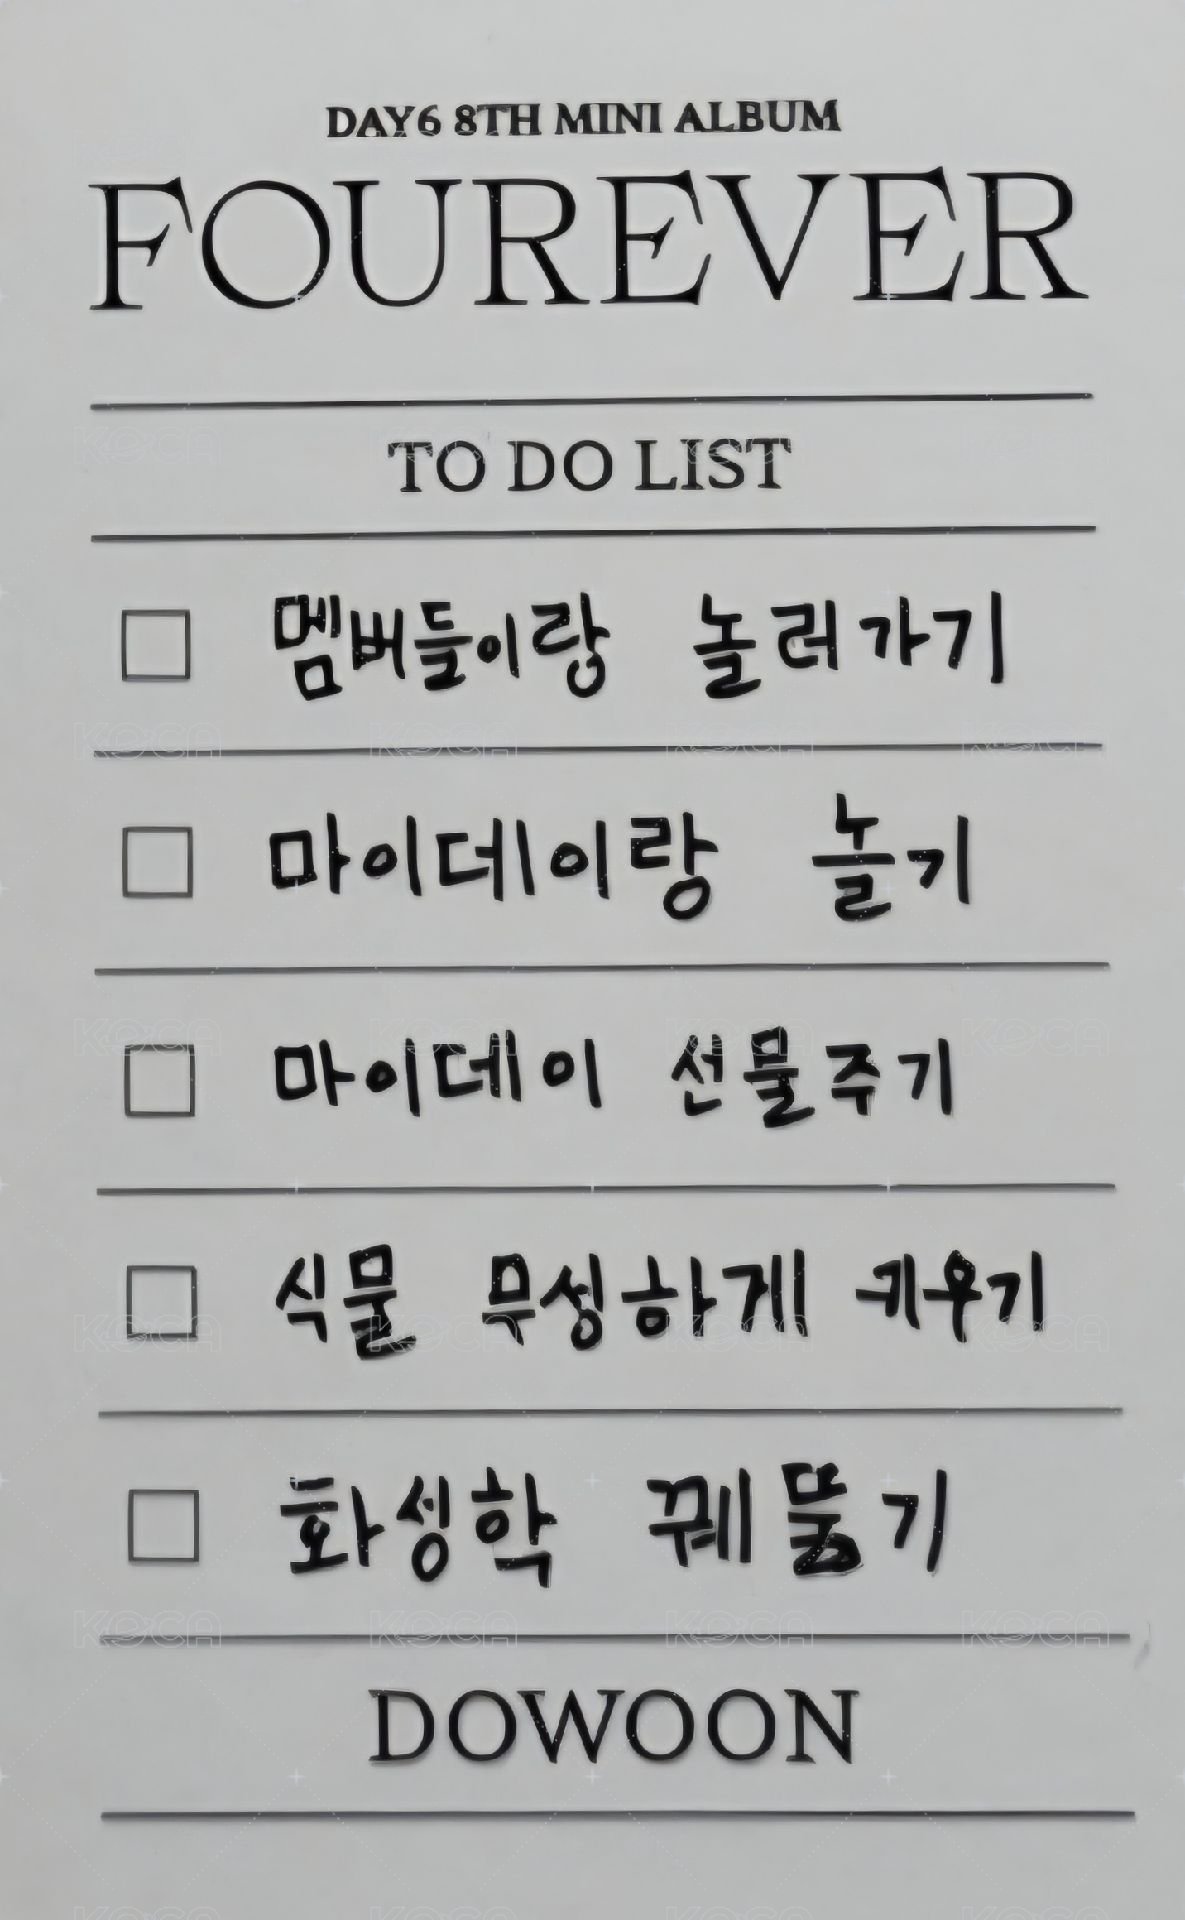 DAY6 8TH MINI ALBUM
FOUREVER
TO DO LIST
멤버들이랑 놀러가기
마이데이랑 놀기
마이데이 선물주기
식물 무성하게 키우기
화성학 꿰뚫기
DOWOON
KOCA